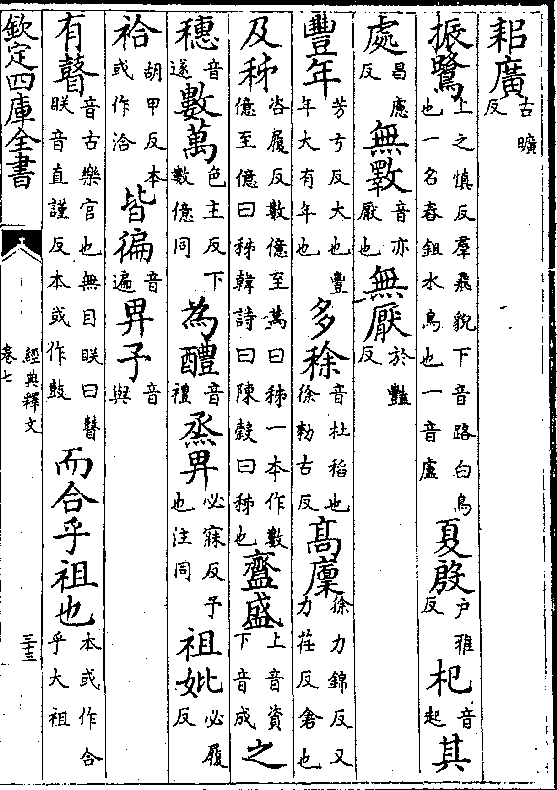 耜廣古曠反
振鷺上之慎反羣飛貌下音路白鳥也一名舂鉏水鳥也一音盧夏殷户雅反杞音起其
處昌慮反無斁音亦厭也無厭於豔反
豐年芳亏反大也豐年大有年也多稌音杜稻也徐勑古反高廩徐力錦反又力荏反倉也
及秭咨履反數億至萬曰秭一本作數億至億曰秭韓詩曰陳穀曰秭也齍盛上音資下音成之
穗音遂數萬色主反下數億同為醴音禮烝畀必寐反予也注同祖妣必履反
祫胡甲反本或作洽皆徧音遍畀予音與
有瞽音古樂官也無目眹曰瞽眹音直謹反本或作鼓而合乎祖也本或作合乎大祖
欽定四庫全書 經典釋文 卷七 三十三